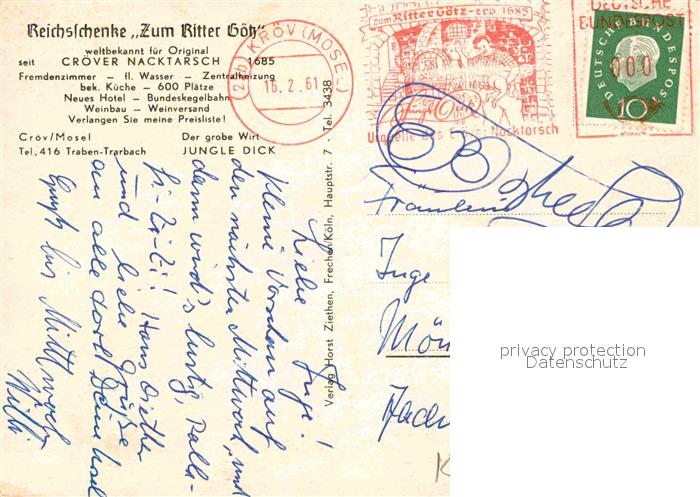 Reichsschenke „Zum Ritter Götz"
weltbekannt für Original
seit CRÖVER NACKTARSCH 1685
Fremdenzimmer — fl. Wasser — Zentralheizung
bek. Küche — 600 Plätze
Neues Hotel — Bundeskegelbahn
Weinbau — Weinversand
Verlangen Sie meine Preisliste!
Cröv/Mosel Der grobe Wirt
Tel. 416 Traben-Trarbach JUNGLE DICK
(22b) KRÖV (MOSEL)
16. 2. 61
zum Ritter Götz - erb. 1685
Jungle Dick
Urquelle des Cröver Nacktarsch
DEUTSCHE
BUNDESPOST
000
DEUTSCHE BUNDESPOST
10
Verlag Horst Ziethen, Frechen/Köln, Hauptstr. 7 · Tel. 3438
Liebe Inge!
kleine Vorschau auf
den nächsten Mittwoch, und
dann wird's lustig,
Hans Dieter
und liebe Grüße
an alle dort
bis Mittwoch
Willi
Fräulein
Inge
privacy protection
Datenschutz